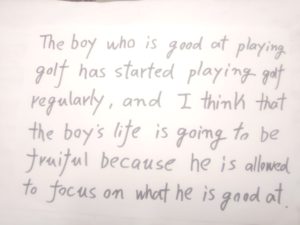 The boy who is good at playing
golf has started playing golf
regularly, and I think that
the boy's life is going to be
fruitful because he is allowed
to focus on what he is good at.